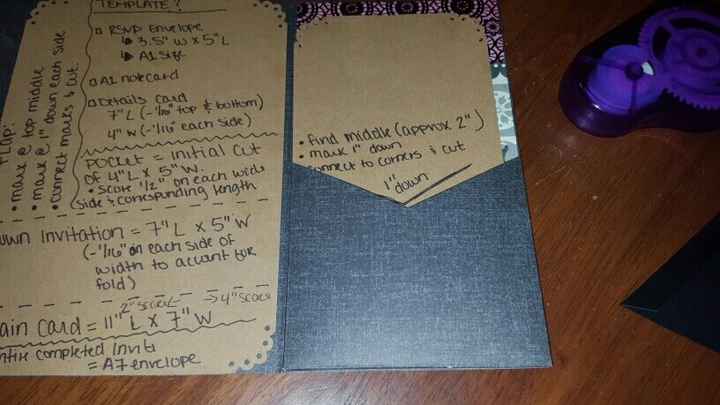 TEMPLATE:
RSVP Envelope
3.5" W x 5" L
A1 Size
A1 notecard
Details Card
7" L (-1/16" top & bottom)
4" W (-1/16" each side)
Pocket = initial cut
of 4"L x 5" W.
• Score 1/2" on each wide
(side & corresponding length
Flap:
• mark @ top middle
• mark @ 1" down each side
• connect marks & cut.
own Invitation = 7" L x 5" W
(-1/16" on each side of
width to account for
fold)
2" score 4" score
ain Card = 11" L x 7" W
ntire completed Invite
= A7 envelope
• Find middle (approx 2")
• mark 1" down
connect to corners & cut
1"
down